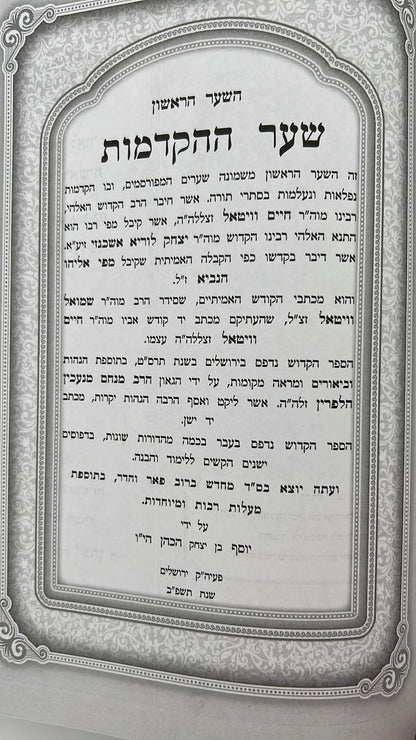 השער הראשון
שער ההקדמות
זה השער הראשון משמונה שערים המפורסמים, ובו הקדמות
נפלאות ונעלמות בסתרי תורה. אשר חיבר הרב הקדוש האלהי,
רבינו מוה״ר חיים וויטאל זצללה״ה, אשר קיבל מפי רבו הוא
התנא האלהי רבינו הקדוש מוה״ר יצחק לוריא אשכנזי זיע״א.
אשר דיבר בקדשו כפי הקבלה האמיתית שקיבל מפי אליהו
הנביא ז״ל.
והוא מכתבי הקודש האמיתיים, שסידר הרב מוה״ר שמואל
וויטאל זצ״ל, שהעתיקם מכתב יד קודש אביו מוה״ר חיים
וויטאל זצללה״ה עצמו.
הספר הקדוש נדפס בירושלים בשנת תרס״ט, בתוספת הגהות
וביאורים ומראה מקומות, על ידי הגאון הרב מנחם מנעכין
הלפרין זלה״ה. אשר ליקט ואסף הרבה הגהות יקרות, מכתב
יד ישן.
הספר הקדוש נדפס בעבר בכמה מהדורות שונות, בדפוסים
ישנים הקשים ללימוד והבנה.
ועתה יוצא בס״ד מחדש ברוב פאר והדר, בתוספת
מעלות רבות ומיוחדות.
על ידי
יוסף בן יצחק הכהן הי״ו
פעיה״ק ירושלים
שנת תשפ״ב